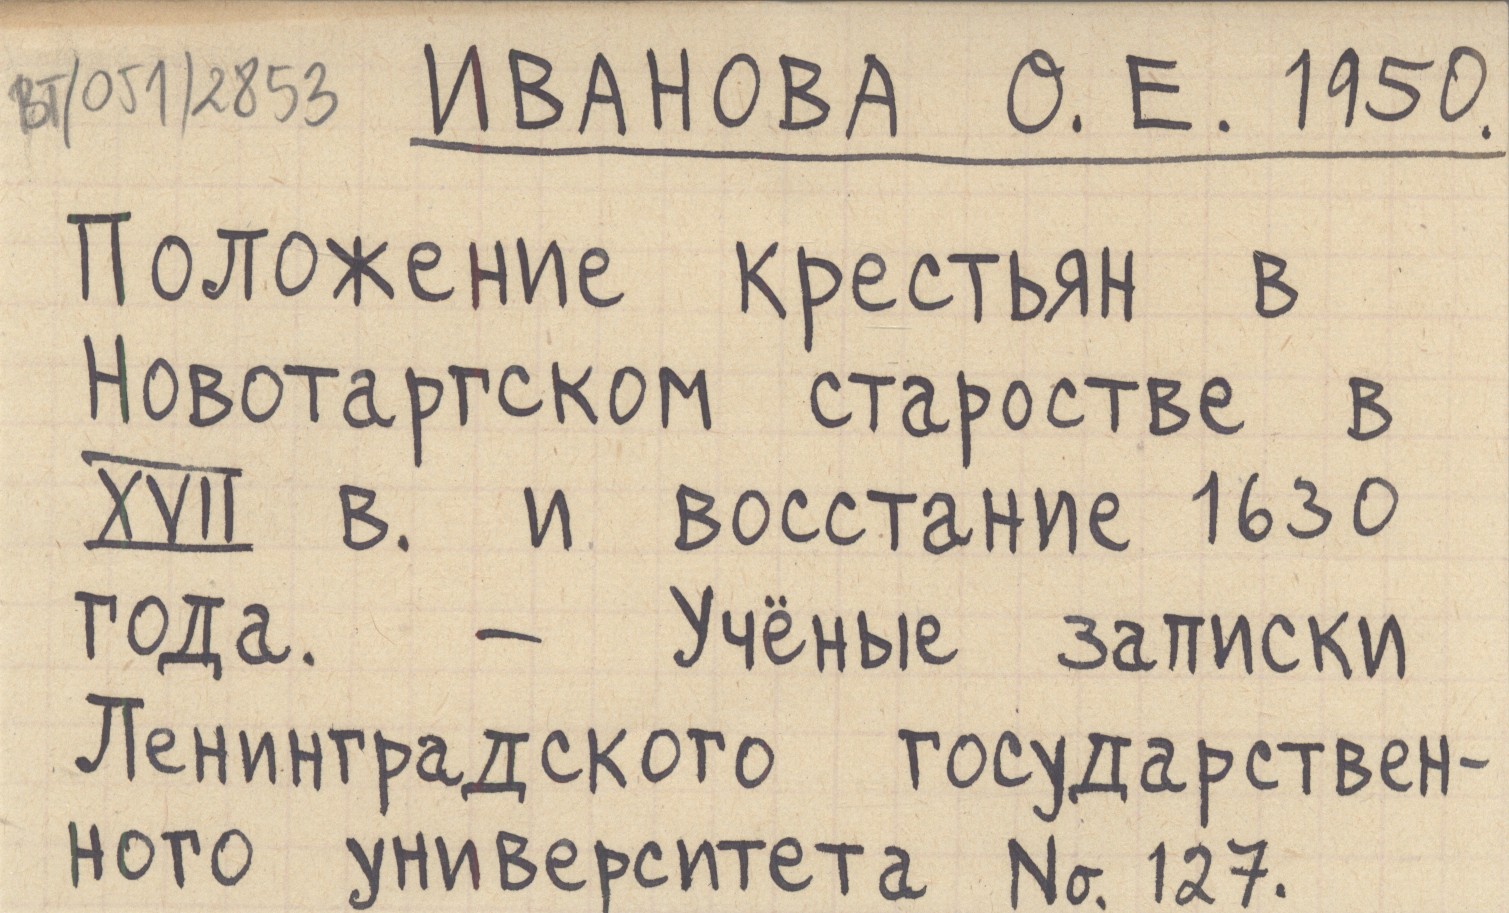 ВТ/051/2853 ИВАНОВА О. Е. 1950.
Положение крестьян в
Новотаргском старостве в
XVII в. и восстание 1630
года. – Учёные записки
Ленинградского государствен-
ного университета No. 127.